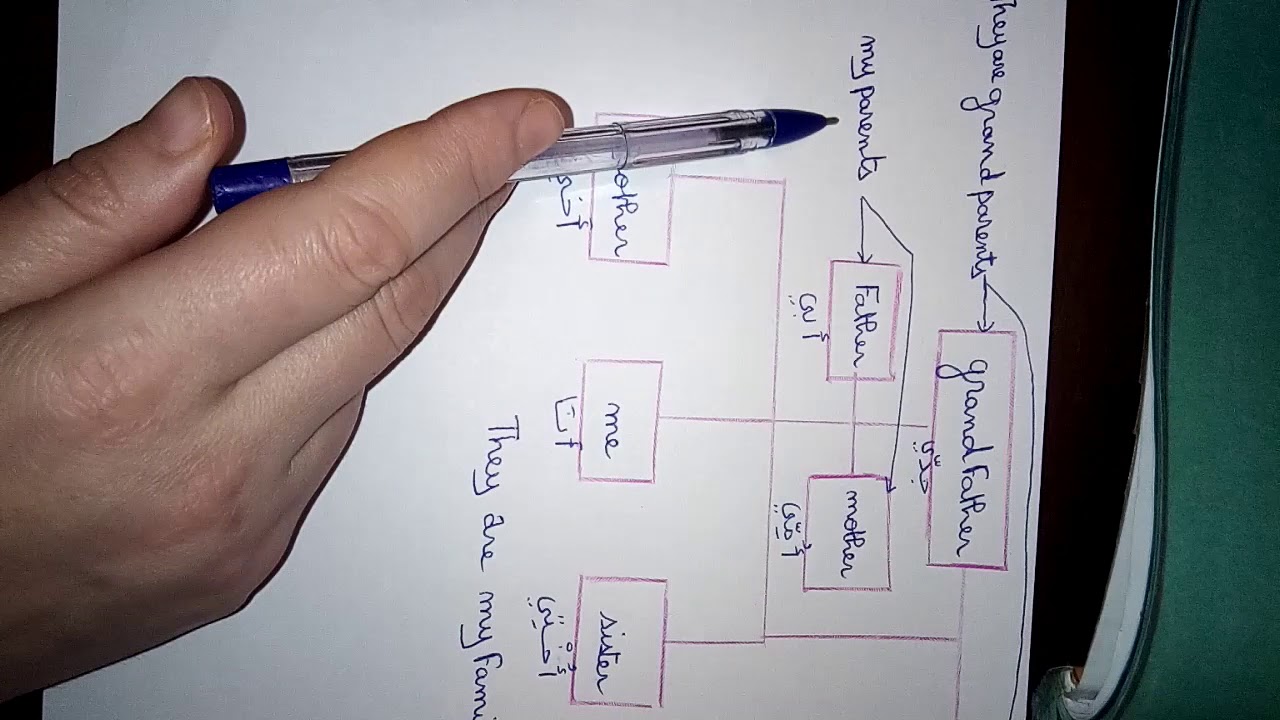 They are grand parents
grand Father
جدّي
my parents
Father
أبي
mother
أمّي
other
أخي
me
أنا
sister
أُختي
They are my Fami